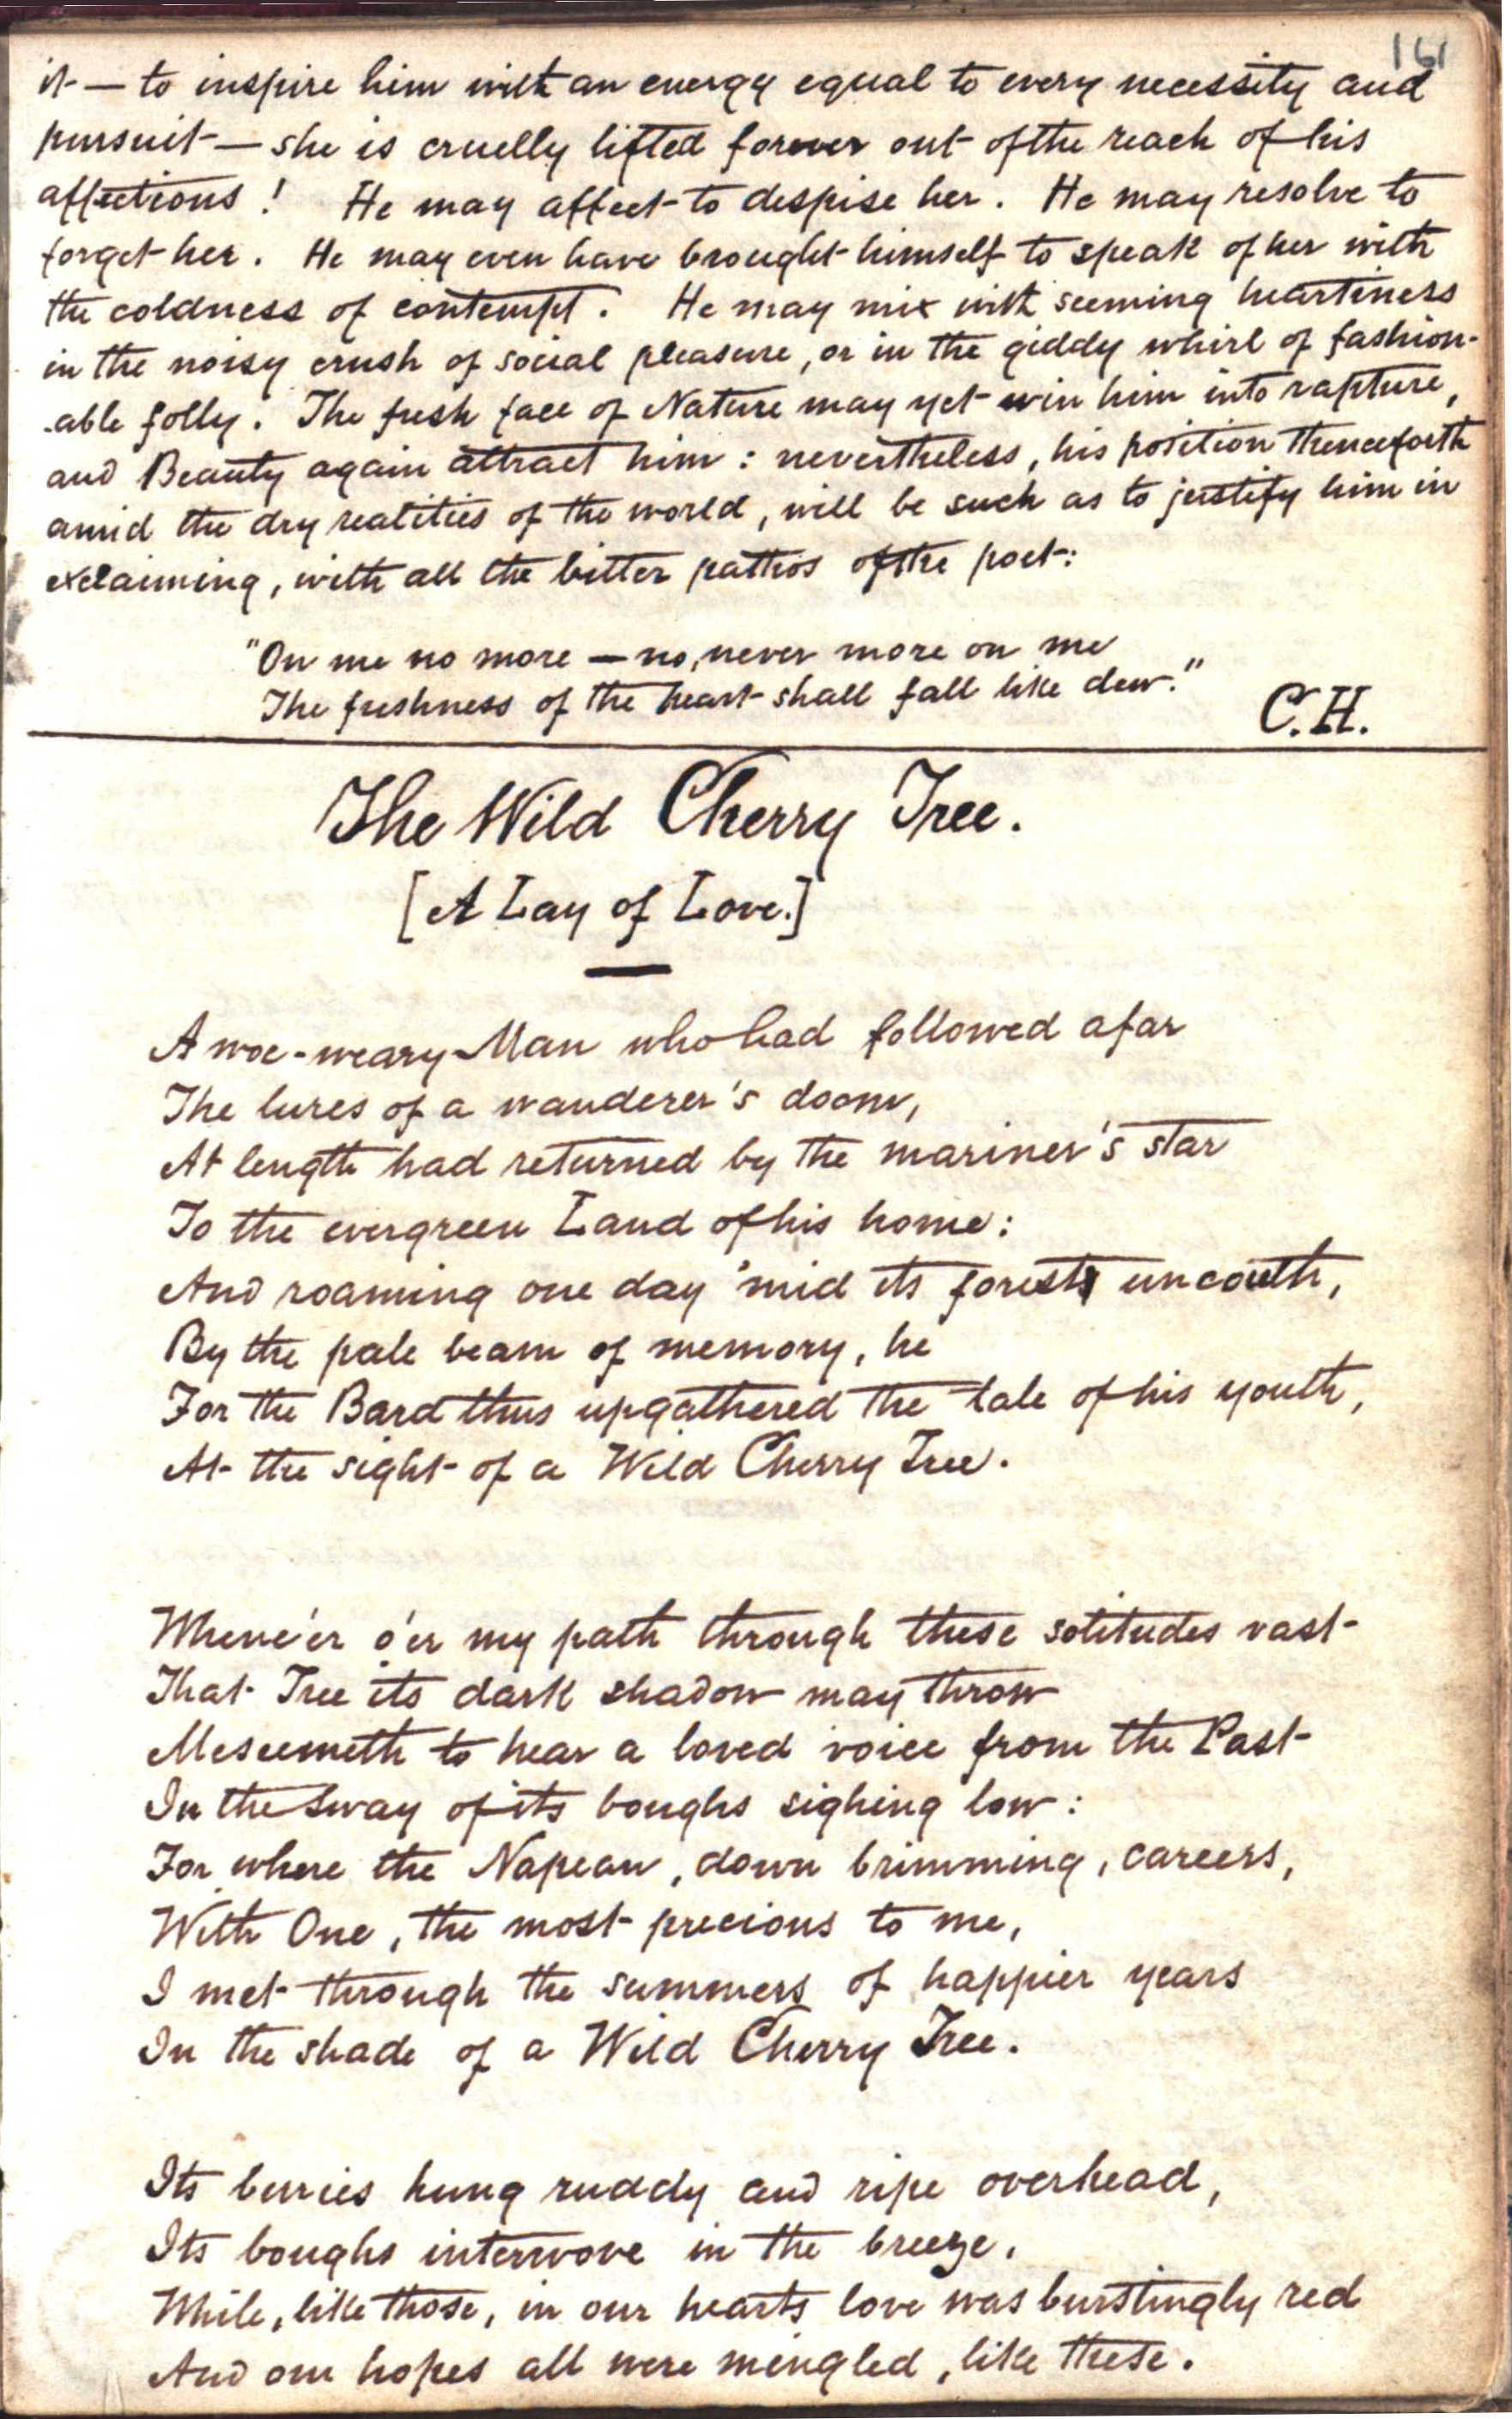 161
it — to inspire him with an energy equal to every necessity and
pursuit — she is cruelly lifted forever out of the reach of his
affections! He may affect to despise her. He may resolve to
forget her. He may even have brought himself to speak of her with
the coldness of contempt. He may mix with seeming heartiness
in the noisy crush of social pleasure, or in the giddy whirl of fashion-
-able folly. The fresh face of Nature may yet win him into rapture,
and Beauty again attract him: nevertheless, his position thenceforth
amid the dry realities of the world, will be such as to justify him in
exclaiming, with all the bitter pathos of the poet:
"On me no more — no, never more on me
The freshness of the heart shall fall like dew."
C.H.
The Wild Cherry Tree.
[A Lay of Love.]
A woe-weary Man who had followed afar
The lures of a wanderer's doom,
At length had returned by the mariner's star
To the evergreen Land of his home:
And roaming one day 'mid its forests uncouth,
By the pale beam of memory, he
For the Bard thus upgathered the tale of his youth,
At the sight of a Wild Cherry Tree.
Whene'er o'er my path through these solitudes vast
That Tree its dark shadow may throw
Meseemeth to hear a loved voice from the Past
In the sway of its boughs sighing low:
For where the Napean, down brimming, careers,
With One, the most precious to me,
I met through the summers of happier years
In the shade of a Wild Cherry Tree.
Its berries hung ruddy and ripe overhead,
Its boughs interwove in the breeze,
While, like those, in our hearts love was burstingly red
And our hopes all were mingled, like these.